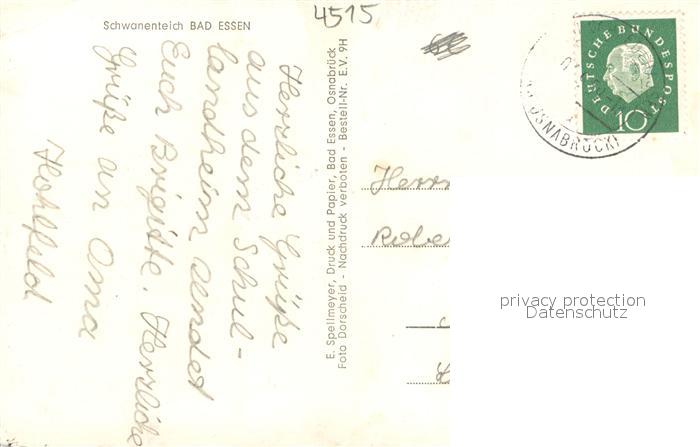 4515
Schwanenteich BAD ESSEN
Herzliche Grüße
aus dem Schul-
landheim sendet
Euch Brigitte. Herzliche
Grüße an Oma
Hohlfeld
E. Spellmeyer, Druck und Papier, Bad Essen, Osnabrück
Foto Dorscheid - Nachdruck verboten - Bestell-Nr. E.V. 9H
DEUTSCHE BUNDESPOST
10
OSNABRÜCK
Herrn
Robe
privacy protection
Datenschutz